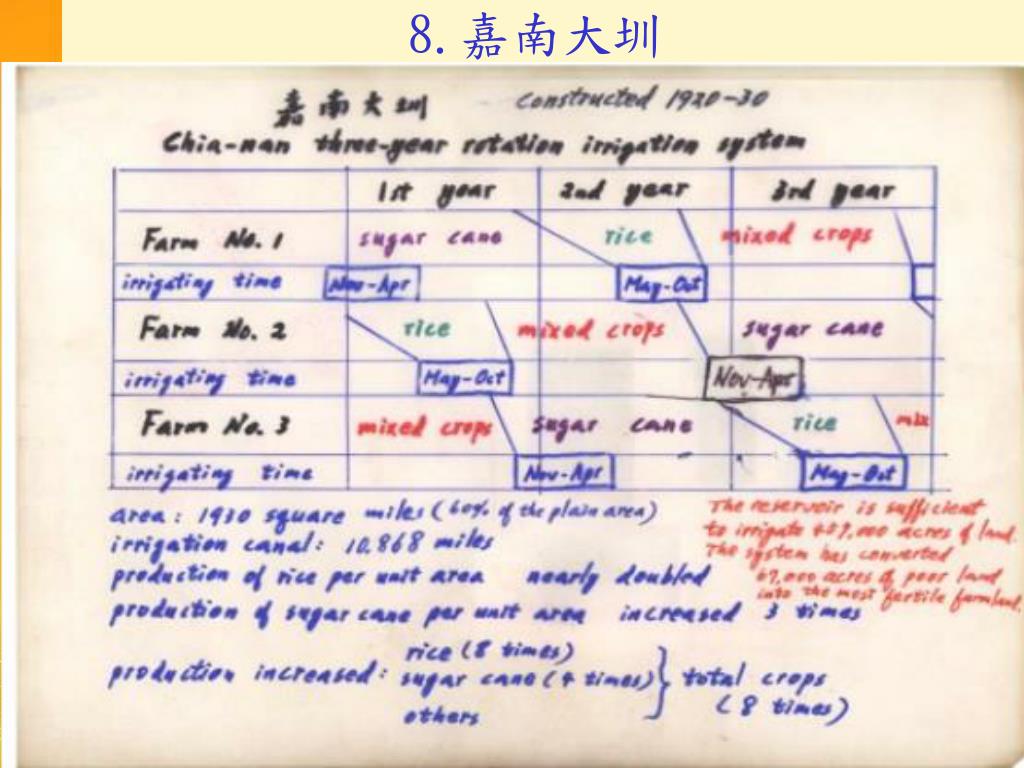 8. 嘉南大圳
嘉南大圳 constructed 1920-30
Chia-nan three-year rotation irrigation system
1st year 2nd year 3rd year
Farm No. 1 sugar cane rice mixed crops
irrigating time Nov-Apr May-Oct
Farm No. 2 rice mixed crops sugar cane
irrigating time May-Oct Nov-Apr
Farm No. 3 mixed crops sugar cane rice mix
irrigating time Nov-Apr May-Oct
area: 1930 square miles (60% of the plain area)
irrigation canal: 10,868 miles
production of rice per unit area nearly doubled
production of sugar cane per unit area increased 3 times
The reservoir is sufficient
to irrigate acres of land.
The system has converted
acres of poor land
into the most fertile farmland.
production increased: rice (8 times)
sugar cane (4 times) } total crops
others (8 times)